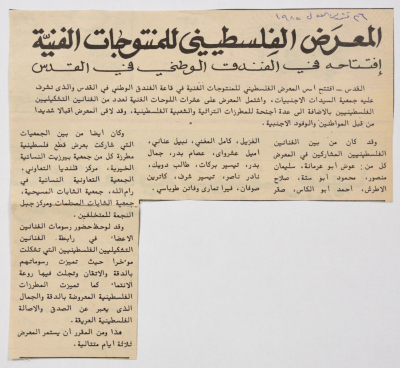 المعرض الفلسطيني للمنتوجات الفنية
إفتتاحه في الفندق الوطني في القدس
القدس - افتتح أمس المعرض الفلسطيني للمنتوجات الفنية في قاعة الفندق الوطني في القدس والذي تشرف
عليه جمعية السيدات الاجنبيات، واشتمل المعرض على عشرات اللوحات الفنية لعدد من الفنانين التشكيليين
الفلسطينيين بالاضافة الى عدة أجنحة للمطرزات التراثية والشعبية الفلسطينية، وقد لاقى المعرض اقبالا شديدا
من قبل المواطنين والوفود الاجنبية.
وقد كان من بين الفنانين
الفلسطينيين المشاركين في المعرض
كل من: عوض أبو عرمانة، سليمان
منصور، محمود أبو ستة، صلاح
الاطرش، أحمد أبو الكاس، صقر
الغزيل، كامل المغني، نبيل عناني،
أميل عشراوي، عصام بدر، جمال
بدر، تيسير بركات، طالب دويك،
نادر ناصر، تيسير شرف، كاترين
صوفان، فيرا تماري وفاتن طوباسي.
وكان أيضا من بين الجمعيات
التي شاركت بعرض قطع فلسطينية
مطرزة كل من جمعية بيرزيت النسائية
الخيرية، مركز قلنديا التعاوني،
الجمعية التعاونية النسائية في
رام الله، جمعية الشابات المسيحية،
جمعية الشابات المسلمات ومركز جبل
النجمة للمتخلفين.
وقد لوحظ حضور رسومات الفنانين
الاعضاء في رابطة الفنانين
التشكيليين الفلسطينيين التي تشكلت
مؤخرا حيث تميزت رسوماتهم
بالدقة والاتقان وتجلت فيها روعة
الانتماء كما تميزت المطرزات
الفلسطينية المعروضة بالدقة والجمال
الذي يعبر عن الصدق والاصالة
الفلسطينية العريقة.
هذا ومن المقرر أن يستمر المعرض
ثلاثة أيام متتالية.